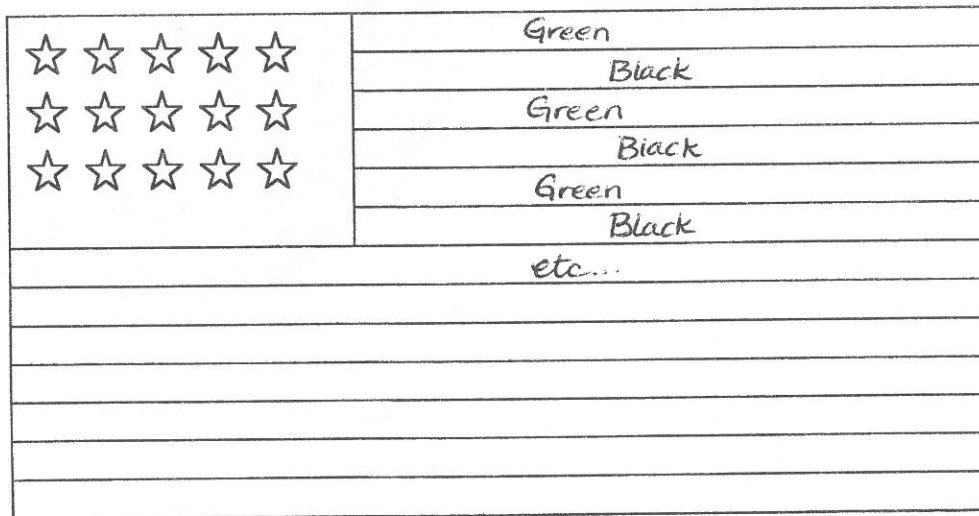 Green
Black
Green
Black
Green
Black
etc...